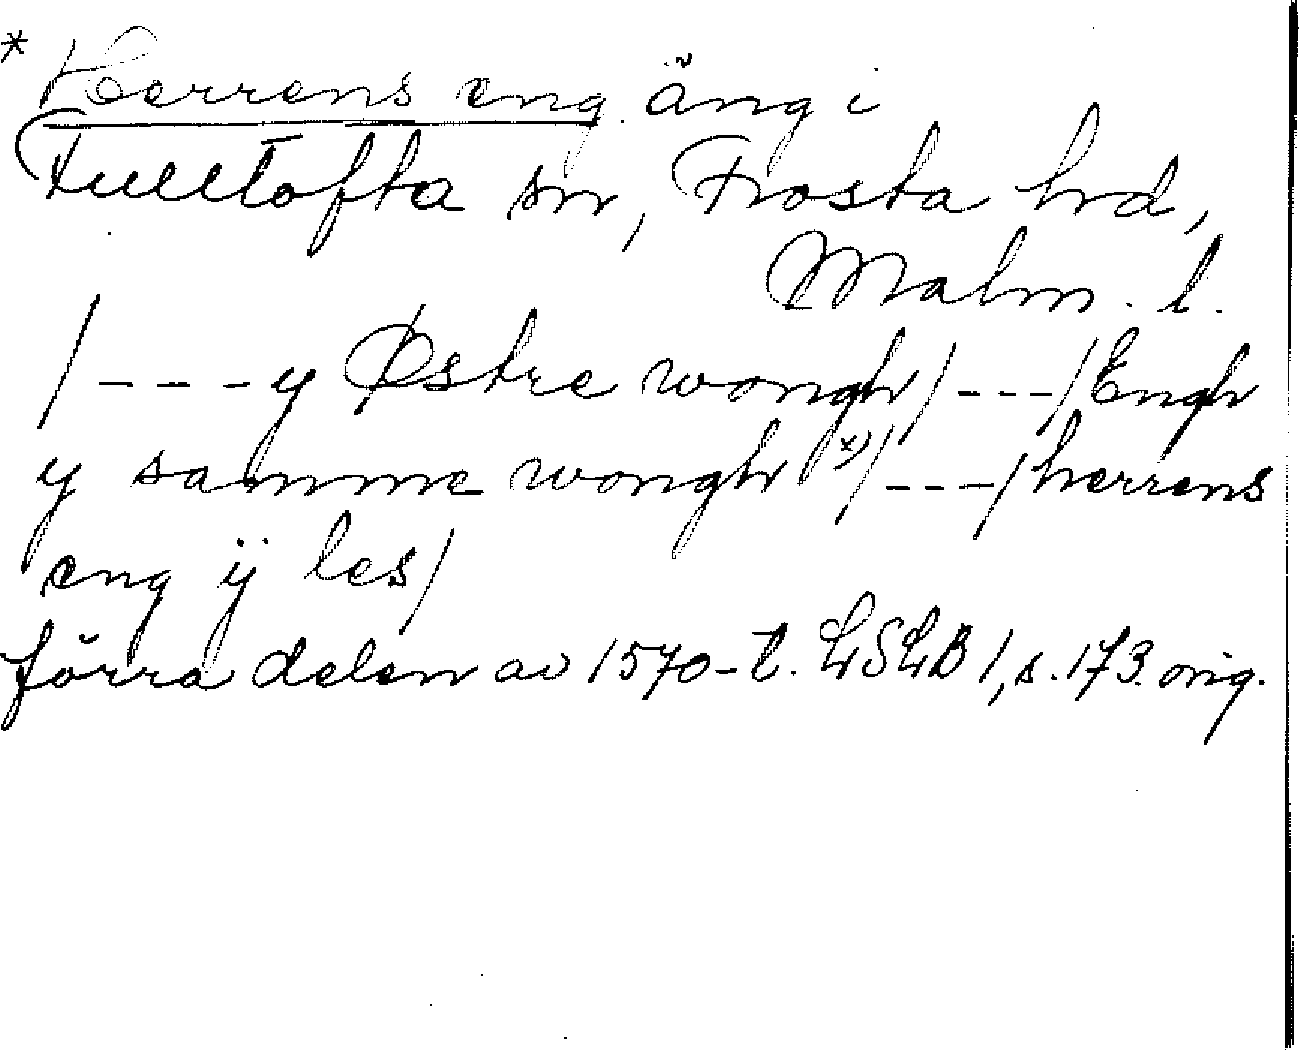 * Herrens eng. äng i
Fulltofta sn, Frosta hrd,
Malm. l.
/---y Østre wongh/---/Engh
y samme wongh x)/---/herrens
eng ÿ les/
förra delen av 1570-t. LSLB 1, s. 173. orig.